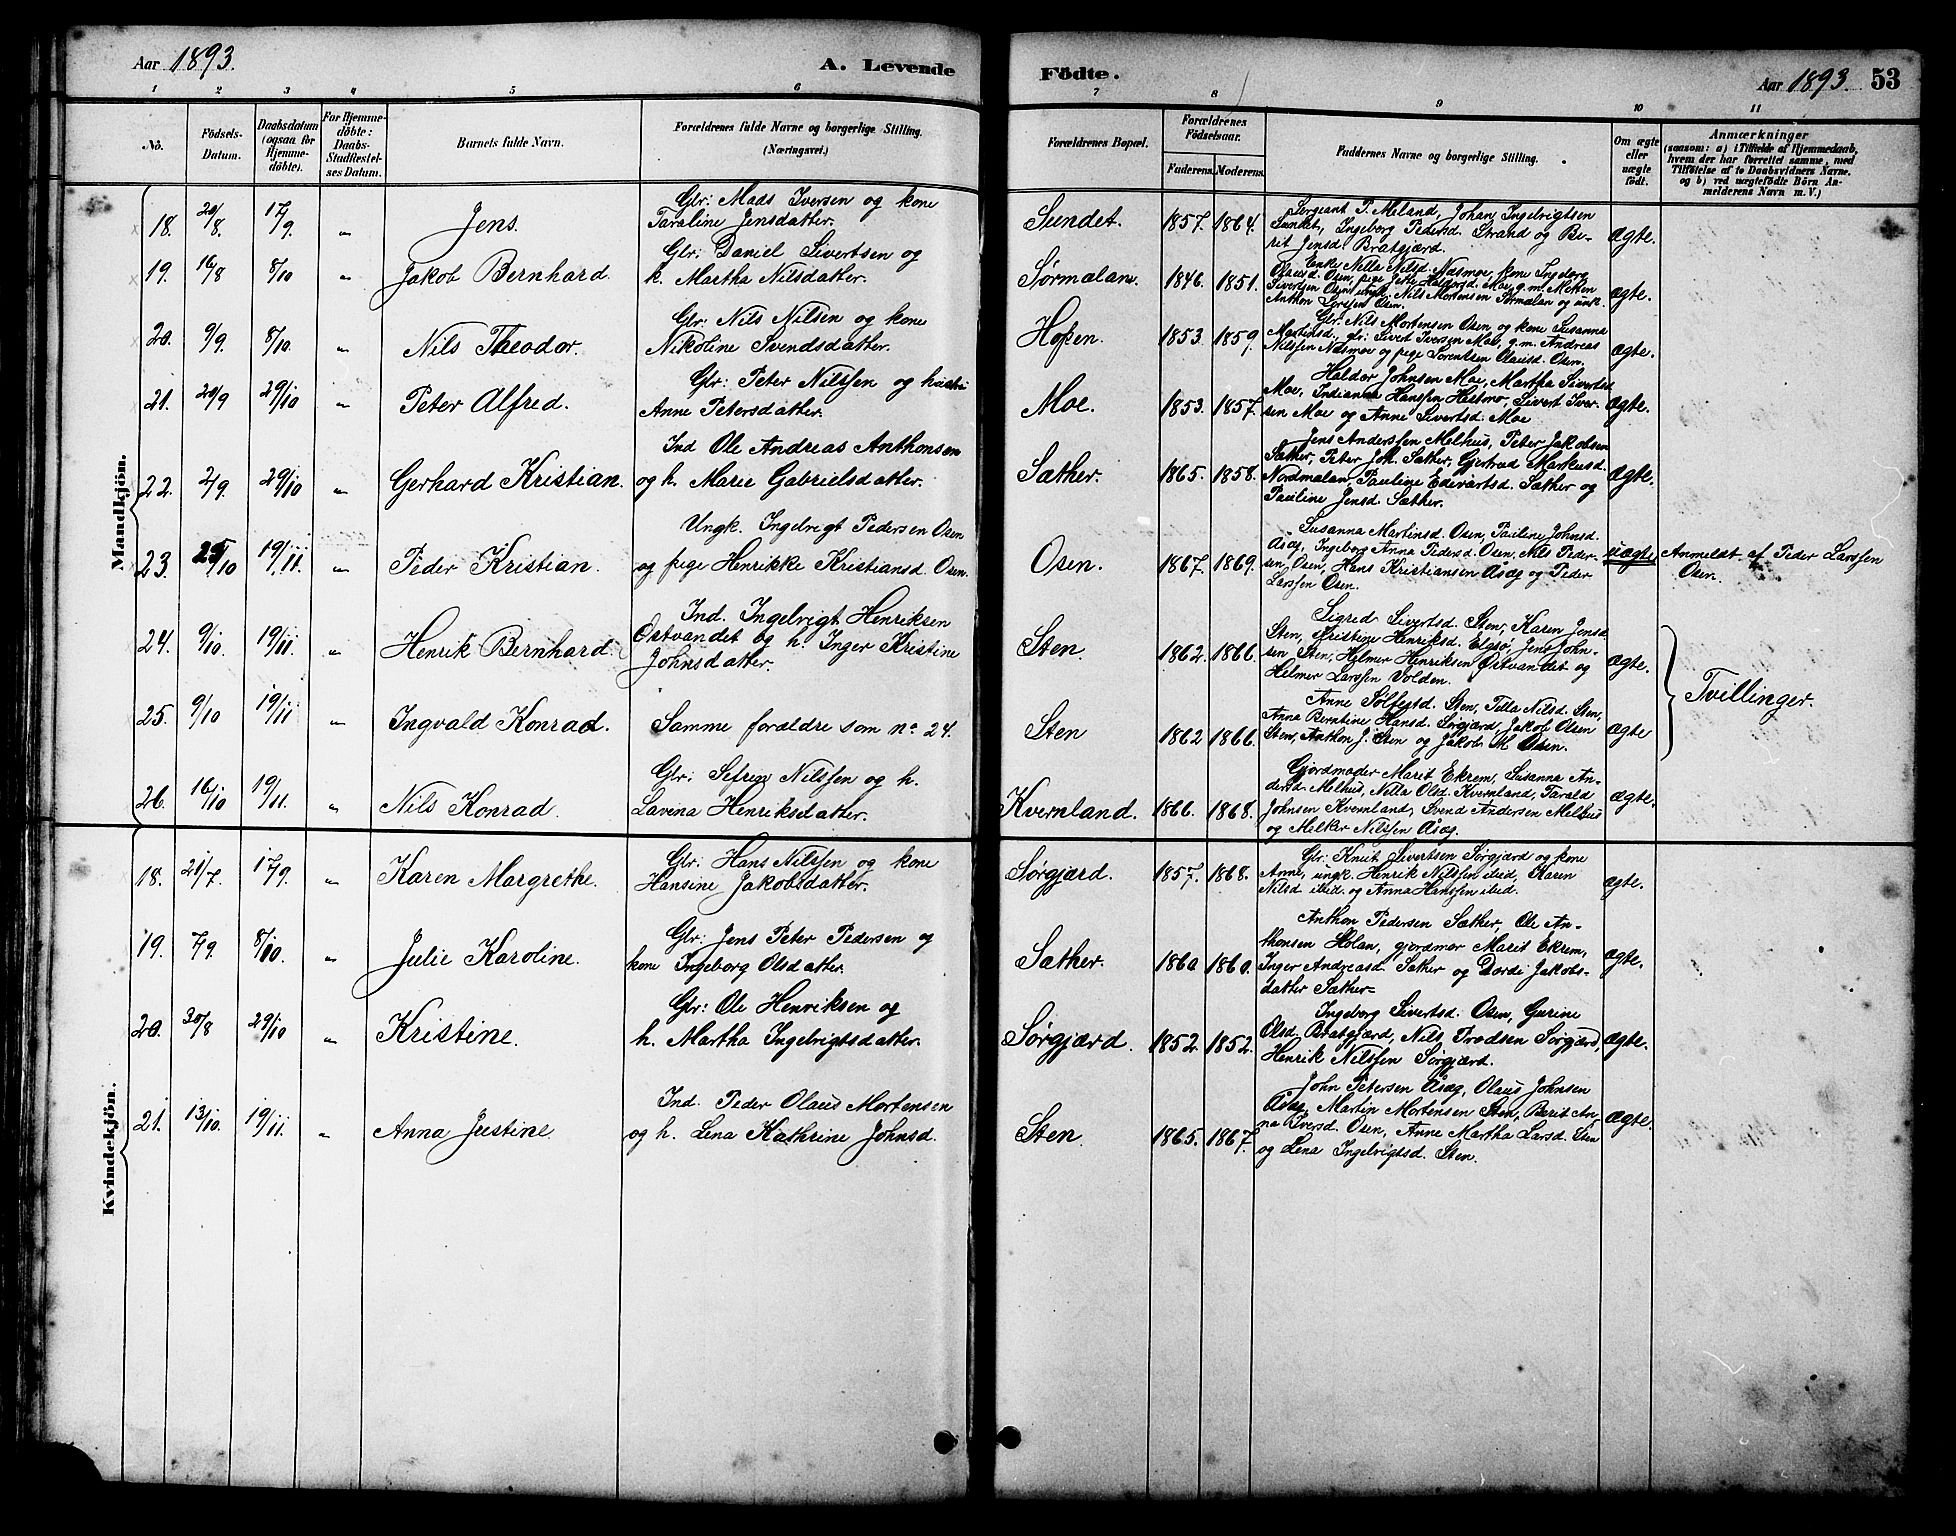 Aar 1893.
A. Levende
1 2 3 4 5 6
No.
Födsels-
Datum.
Daabsdatum
(ogsaa for
Hjemme-
döbte).
For Hjemme-
döbte:
Daabs-
Stadfæstel-
ses Datum.
Barnets fulde Navn.
Forældrenes fulde Navne og borgerlige Stilling.
(Næringsvei.)
Födte.
Aar 1893. 53
7 8 9 10 11
Forældrenes Bopæl.
Forældrenes
Födselsaar.
Faderens. Moderens.
Faddernes Navne og borgerlige Stilling.
Om ægte
eller
uægte
födt.
Anmærkninger
(saasom: a) i Tilfælde af Hjemmedaab,
hvem der har forrettet samme, med
Tilföielse af to Daabsvidners Navne.
og b) ved uægtefödte Börn An-
melderens Navn m. V.)
Mandkjön.
18. 20/8 17/9 „ Jens.
Gbr: Mads Iversen og kone
Taraline Jensdatter.
Sundet. 1857. 1864.
Sergeant P. Meland, Johan Ingelrigtsen
Sundet, Ingeborg Pedersd. Strand og Be-
rit Jensd. Bratgjærd.
Ægte.
19. 16/8 8/10 „ Jakob Bernhard.
Gbr: Daniel Sivertsen og
k. Martha Nilsdatter.
Sørmalan. 1846. 1851.
Enke Nella Nilsd. Næsmoe, kone Ingeborg
Olausd. Osen, pige Jette Haldorsd. Moe, g.m. Metten
Sivertsen Osen, ungk. Nils Mortensen Sørmalan og ungk.
Anthon Larssen Osen.
Ægte.
20. 9/9 8/10 „ Nils Theodor.
Gbr: Nils Nilsen og kone
Nikoline Svendsdatter.
Hopen. 1853. 1859.
Gbr: Nils Mortensen Osen og kone Susanna
Martinsd. gbr: Sivert Iversen Moe, g.m. Andreas
Nilssen Næsmoe og pige Lorentsen Olausd. Osen.
Ægte.
21. 20/9 29/10 „ Peter Alfred.
Gbr: Peter Nilssen og hustru
Anne Petersdatter.
Moe. 1853. 1857.
Haldor Johnsen Moe, Martha Sivertsd
Moe, Indianna Hanssen Hestmo, Sivert Iver-
sen Moe og Anne Sivertsd. Moe
Ægte.
22. 2/9. 29/10 „ Gerhard Kristian.
Ind Ole Andreas Anthonsen
og h. Marie Gabrielsdatter.
Sæther. 1865. 1858.
Jens Anderssen Melhus, Peter Jakobsen
Sæther, Peter Joh. Sæther, Gjertrud Markusd.
Nordmalan, Pauline Edevartsd. Sæther og
Pauline Jensd. Sæther.
Ægte.
23. 25/10 19/11. „ Peder Kristian.
Ungk. Ingelrigt Pedersen Osen
og pige Henrikke Kristiansd. Osen.
Osen. 1867. 1869.
Susanna Martinsd. Osen, Pauline Johnsd.
Åsæg, Ingeborg Anna Pedersd. Osen, Nils Peder-
sen Osen, Hans Kristiansen Åsæg og Peder
Larssen Osen.
uægte.
Anmeldt af Peder Larssen
Osen.
24. 9/10. 19/11. „ Henrik Bernhard.
Ind. Ingelrigt Henriksen
Østvandet og h. Inger Kristine
Johnsdatter.
Sten. 1862. 1866.
Sigrid Sivertsd. Sten, Karen Jensd
Sten, Kristine Henriksd. Elgsø, Jens John-
sen Sten, Helmer Henriksen Østvandet og
Helmer Larssen Volden.
Ægte.
25. 9/10 19/11 „ Ingvald Konrad.
Samme forældre som no. 24.
Sten 1862 1866.
Anne Solfestd. Sten, Tella Nilsd. Sten,
Anna Berntine Hansd. Sørgjærd, Jakob Olsen
Sten, Anthon J. Sten og Jakob M. Osen.
Ægte
Tvillinger.
26. 16/10 19/11. „ Nils Konrad.
Gbr: Sefrin Nilssen og h.
Lavena Henriksdatter.
Kvernland. 1866. 1868.
Gjordmoder Marit Ekrem, Susanna An-
dersd. Melhus, Nella Olsd. Kvernland, Tarald
Johnsen Kvernland, Svend Andersen Melhus
og Melker Nilssen Åsæg.
Ægte.
Kvindekjön.
18. 21/7. 17/9. „ Karen Margrethe.
Gbr: Hans Nilssen og kone
Hansine Jakobsdatter.
Sørgjærd. 1857. 1868.
Gbr: Knut Sivertsen Sørgjærd og kone
Anne, ungk. Henrik Nilssen ibid, Karen
Nilsd ibid. og Anna Hanssen ibid.
Ægte.
19. 7/9. 8/10. „ Julie Karoline.
Gbr: Jens Peter Pedersen og
kone Ingeborg Olsdatter.
Sæther. 1860 1860.
Anthon Pedersen Sæther, Ole An-
thonsen Holan, gjordmor Marit Ekrem,
Inger Andreasd. Sæther og Dordi Jakobs-
datter Sæther.
Ægte.
20. 30/8 29/10 „ Kristine.
Gbr: Ole Henriksen og
h. Martha Ingelrigtsdatter.
Sørgjærd. 1852. 1852.
Ingeborg Sivertsd. Osen, Gurine
Olsd. Bratgjærd, Nils Trodsen Sørgjærd,
Henrik Nilssen Sørgjærd.
Ægte.
21. 13/10. 19/11. „ Anna Justine.
Ind. Peder Olaus Mortensen
og h. Lena Kathrine Johnsd.
Sten. 1865. 1867.
John Petersen Åsæg, Olaus Johnsen
Åsæg, Martin Mortensen Sten, Berit An-
na Iversd. Osen, Anne Martha Larsd. Sten
og Lena Ingelrigtsd. Sten.
Ægte.